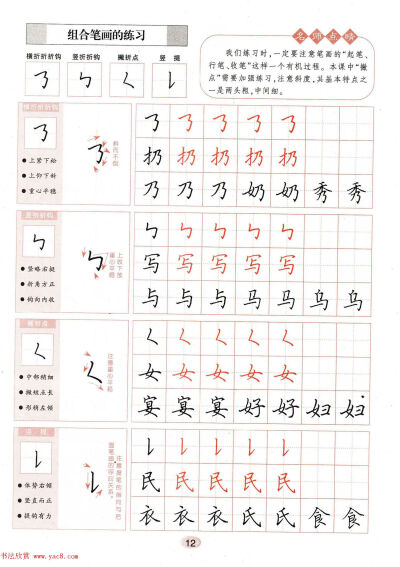 组合笔画的练习
横折折折钩 竖折折钩 撇折点 竖提
㇡ ㇉ ㇛ ㇙
名师点晴
我们练习时,一定要注意笔画的“起笔、
行笔、收笔”这样一个有机过程。本课中“撇
点”需要加强练习,注意斜度,其基本特点之
一是两头粗,中间细。
横折折折钩
㇡
上紧下松
上仰下斜
重心平稳
㇡
斜而不倒
㇡ ㇡ ㇡ ㇡ ㇡
扔 扔 扔 扔 扔
乃 乃 乃 奶 奶 秀 秀
竖折折钩
㇉
竖略右挺
折角方正
钩向内收
㇉
上收下放
重心平稳
㇉ ㇉ ㇉ ㇉ ㇉
写 写 写 写 写
与 与 与 马 马 乌 乌
撇折点
㇛
中部稍细
撇短点长
形稍左倾
㇛
注意重心平稳
㇛ ㇛ ㇛ ㇛ ㇛
女 女 女 女 女
宴 宴 宴 好 好 妇 妇
竖提
㇙
体势右倾
竖直而正
提钩有力
㇙
㇙ ㇙ ㇙ ㇙ ㇙
民 民 民 民 民
衣 衣 衣 氏 氏 食 食
12
书法欣赏 www.yac8.com